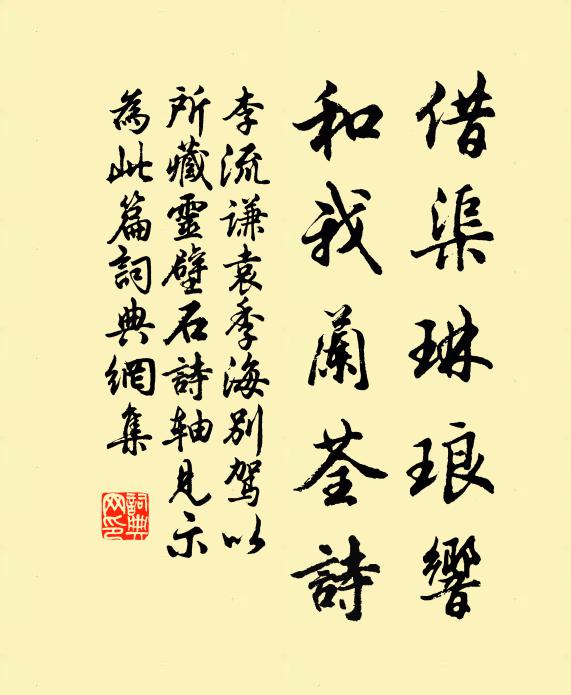 借渠琳琅響
和我蘭荃詩
李流謙袁季海別駕以
所藏靈壁石詩軸見示
為此篇詞典網集
詞典
网印